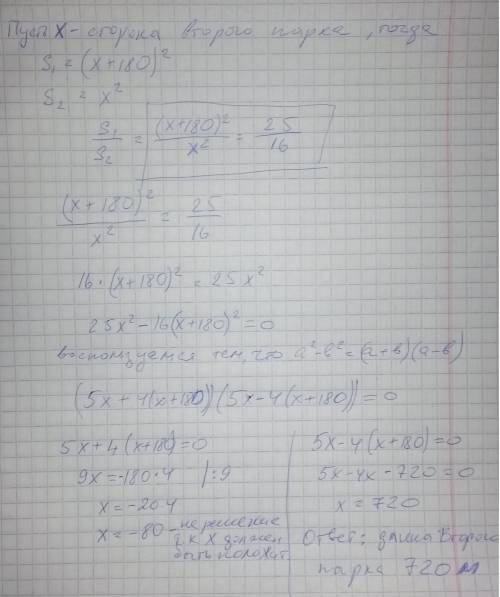 Пусть x - сторона второго парка, тогда
S₁ = (x+180)²
S₂ = x²
S₁/S₂ = (x+180)²/x² = 25/16
(x+180)²/x² = 25/16
16·(x+180)² = 25x²
25x² - 16(x+180)² = 0
воспользуемся тем, что a² - b² = (a+b)(a-b)
(5x + 4(x+180))(5x - 4(x+180)) = 0
5x + 4(x+180) = 0
9x = -180·4 |:9
x = -20·4
x = -80 - не решение
т.к x должен
быть положит
5x - 4(x+180) = 0
5x - 4x - 720 = 0
x = 720
Ответ: длина второго
парка 720 м